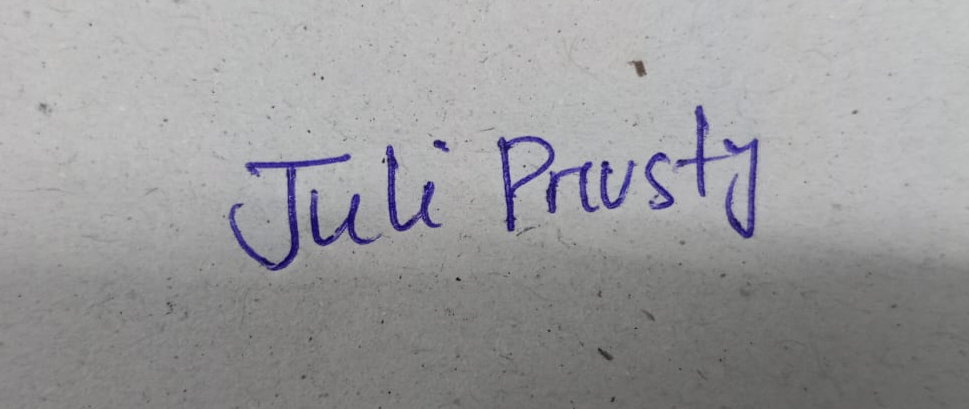 Juli Prusty